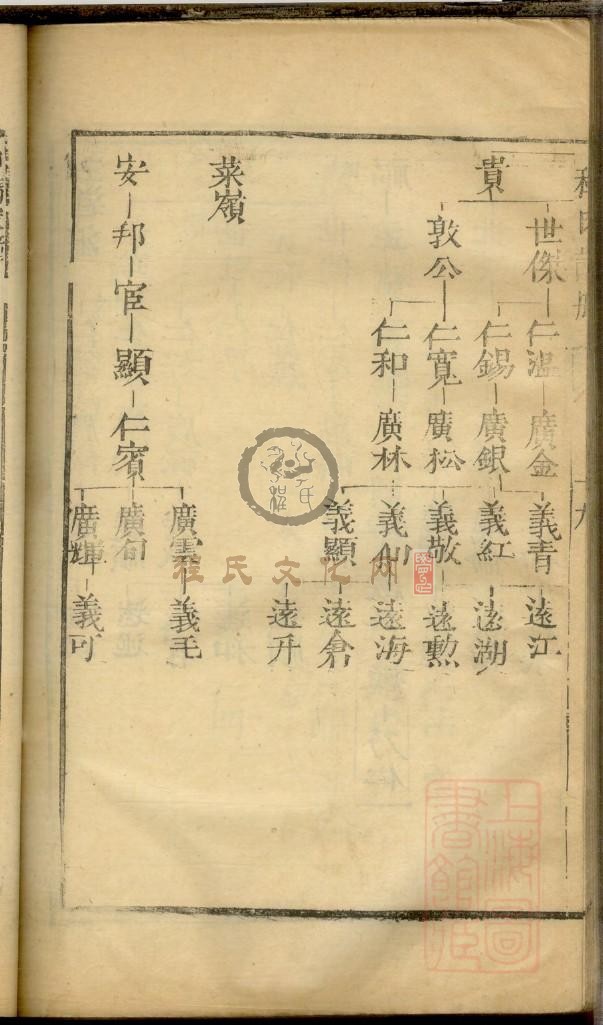 貴
世傑 仁溫 廣金 義青 遠江
仁錫 廣銀 義紅 遠湖
敦公 仁寬 廣松 義敬 遠勲
仁和 廣林 義仙 遠海
義顯 遠倉
遠升
菜嶺
廣雲 義毛
安 邦 宦 顯 仁賓 廣旬
廣輝 義可
程氏文化网
上海圖書館藏